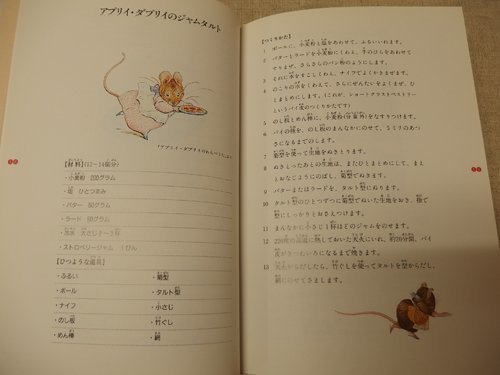 アプリイ・ダプリイのジャムタルト
『アプリイ・ダプリイのわらべうた』より
【材料】(12～14個分)
・小麦粉 200グラム
・塩 ひとつまみ
・バター 50グラム
・ラード 50グラム
・冷水 大さじ2～3杯
・ストロベリージャム 1びん
【ひつような道具】
・ふるい ・菊型
・ボール ・タルト型
・ナイフ ・小さじ
・のし板 ・竹ぐし
・めん棒 ・網
【つくりかた】
1 ボールに、小麦粉と塩をあわせて、ふるいいれます。
2 バターとラードを小麦粉にくわえ、手のひらをあわせて
まぜ、さらさらのパン粉のようにします。
3 それに水をすこしくわえ、ナイフでよくかきまぜます。
4 のこりの水をくわえて、さらにぜんたいをよくまぜ、ひ
とまとめにします。(これが、ショートクラストペストリー
というパイ皮のつくりかたです)
5 のし板とめん棒に、小麦粉(分量外)をなすりつけます。
6 パイの種を、のし板のまんなかにのせて、5ミリのあつ
さになるまでのします。
7 菊型を使って生地をぬきとります。
8 ぬきしたあとの生地は、まだひとまとめにして、まえ
とおなじようにのばし、菊型でぬきます。
9 バターまたはラードを、タルト型にぬります。
10 タルト型のひとつずつに菊型でぬいた生地をおき、指で
型にしっかりとおさえつけます。
11 まんなかに小さじ1杯ほどのジャムをのせます。
12 220度の高温に熱しておいた天火にいれ、約20分間、パイ
皮がきつねいろになるまで焼きます。
13 天火からだしたら、竹ぐしを使ってタルトを型からだし、
網にのせてさまします。